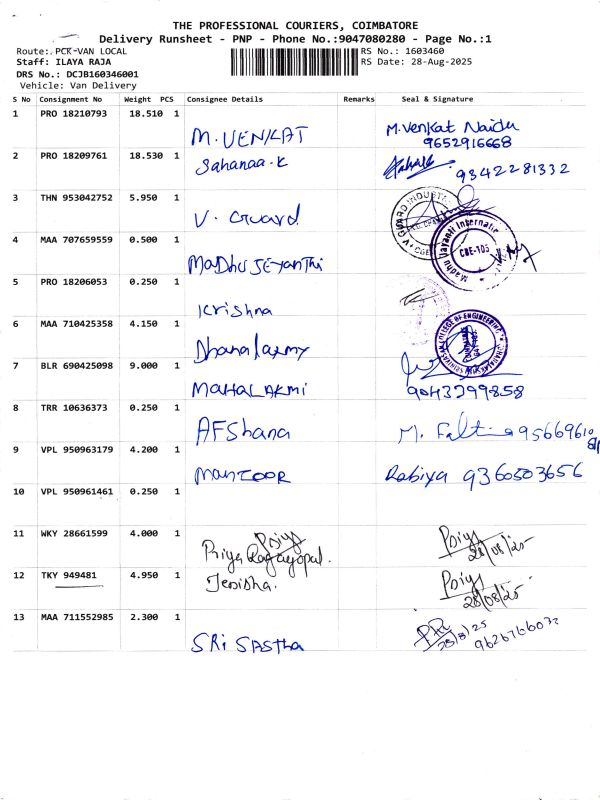 THE PROFESSIONAL COURIERS, COIMBATORE
Delivery Runsheet - PNP - Phone No.:9047080280 - Page No.:1
Route: PCK-VAN LOCAL
RS No.: 1603460
Staff: ILAYA RAJA
RS Date: 28-Aug-2025
DRS No.: DCJB160346001
Vehicle: Van Delivery
S No Consignment No Weight PCS Consignee Details Remarks Seal & Signature
1 PRO 18210793 18.510 1
M. VENKAT M. Venkat Naidu
9652916668
2 PRO 18209761 18.530 1
Sahanaa.K 9342281332
3 THN 953042752 5.950 1
V. Guard
4 MAA 707659559 0.500 1
Madhu Jeyanthi
Madhu Jayanti Internatio
CBE-105
5 PRO 18206053 0.250 1
Krishna
6 MAA 710425358 4.150 1
Dhanalaxmy
COLLEGE OF ENGINEERING
7 BLR 690425098 9.000 1
MAHALAKMI 9043299858
8 TRR 10636373 0.250 1
AFShana M.
9 VPL 950963179 4.200 1
MANZOOR Rabiya 9360503656
10 VPL 950961461 0.250 1
11 WKY 28661599 4.000 1
Priya Ragayopal. Priya 28/08/25
12 TKY 949481 4.950 1
Jenisha. Priya 28/08/25
13 MAA 711552985 2.300 1
SRi SASTHA 28/8/25